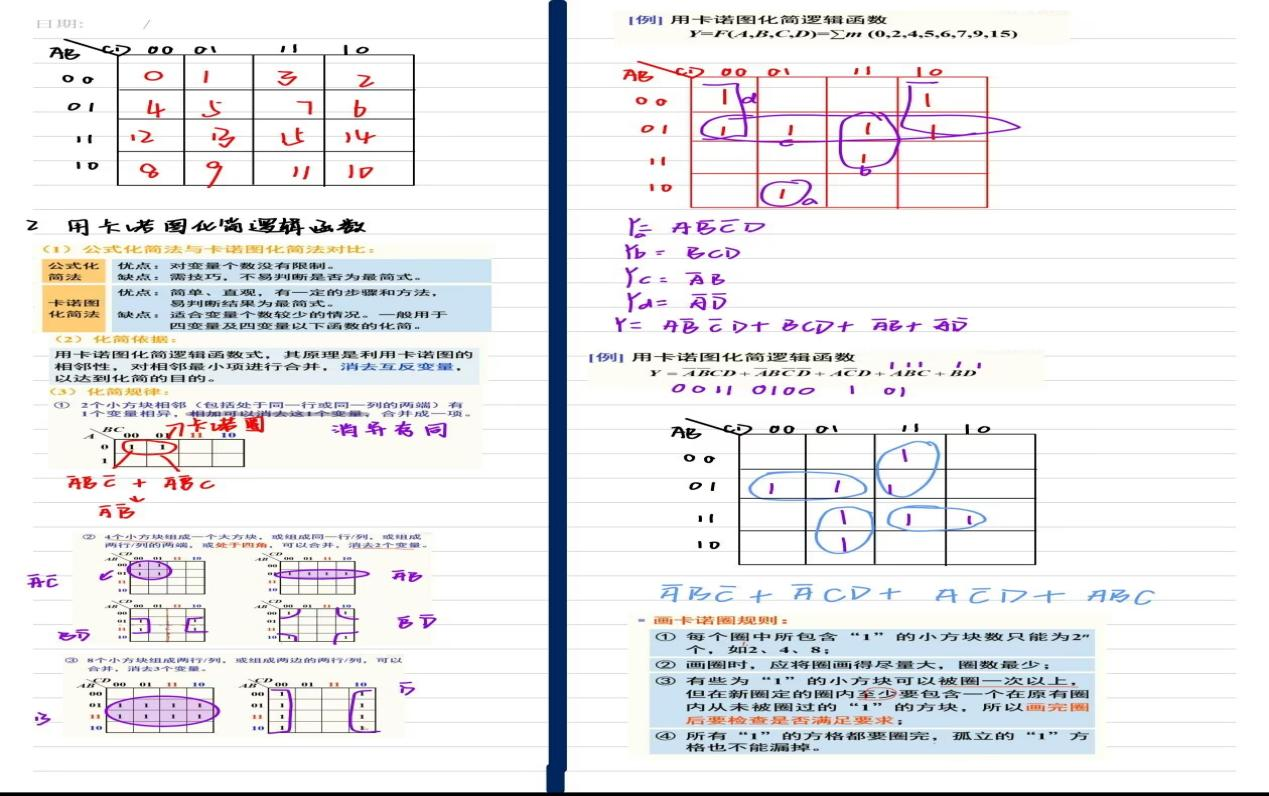 日期: /
AB CD 00 01 11 10
00 0 1 3 2
01 4 5 7 6
11 12 13 15 14
10 8 9 11 10
2 用卡诺图化简逻辑函数
(1) 公式化简法与卡诺图化简法对比:
公式化简法
优点: 对变量个数没有限制。
缺点: 需技巧, 不易判断是否为最简式。
卡诺图化简法
优点: 简单、直观, 有一定的步骤和方法,
易判断结果为最简式。
缺点: 适合变量个数较少的情况。一般用于
四变量及四变量以下函数的化简。
(2) 化简依据:
用卡诺图化简逻辑函数式, 其原理是利用卡诺图的
相邻性, 对相邻最小项进行合并, 消去互反变量,
以达到化简的目的。
(3) 化简规律:
① 2个小方块相邻 (包括处于同一行或同一列的两端) 有
1个变量相异, 相加可以消去这1个变量, 合并成一项。
A BC 00 01 11 10
0 1 1
1
卡诺圈
消异存同
A̅B̅C̅ + A̅B̅C
A̅B̅
② 4个小方块组成一个大方块, 或组成同一行/列, 或组成
两行/列的两端, 或处于四角, 可以合并, 消去2个变量。
A̅C̅
A̅B
BD̅
B̅D̅
③ 8个小方块组成两行/列, 或组成两边的两行/列, 可以
合并, 消去3个变量。
B
D̅
[例] 用卡诺图化简逻辑函数
Y=F(A,B,C,D)=∑m (0,2,4,5,6,7,9,15)
AB CD 00 01 11 10
00 1 d 1
01 1 1 1 1
c
11 1
b
10 1 a
Ya= AB̅C̅D
Yb= BCD
Yc= A̅B
Yd= A̅D̅
Y= AB̅C̅D+ BCD+ A̅B+ A̅D̅
[例] 用卡诺图化简逻辑函数
0011 0100 1 01
AB CD 00 01 11 10
00 1
01 1 1 1
11 1 1 1
10 1
A̅BC̅ + A̅CD + AC̅D + ABC
▪ 画卡诺圈规则:
① 每个圈中所包含 “1” 的小方块数只能为2ⁿ
个, 如2、4、8;
② 画圈时, 应将圈画得尽量大, 圈数最少;
③ 有些为 “1” 的小方块可以被圈一次以上,
但在新圈定的圈内至少要包含一个在原有圈
内从未被圈过的 “1” 的方块, 所以画完圈
后要检查是否满足要求;
④ 所有 “1” 的方格都要圈完, 孤立的 “1” 方
格也不能漏掉。